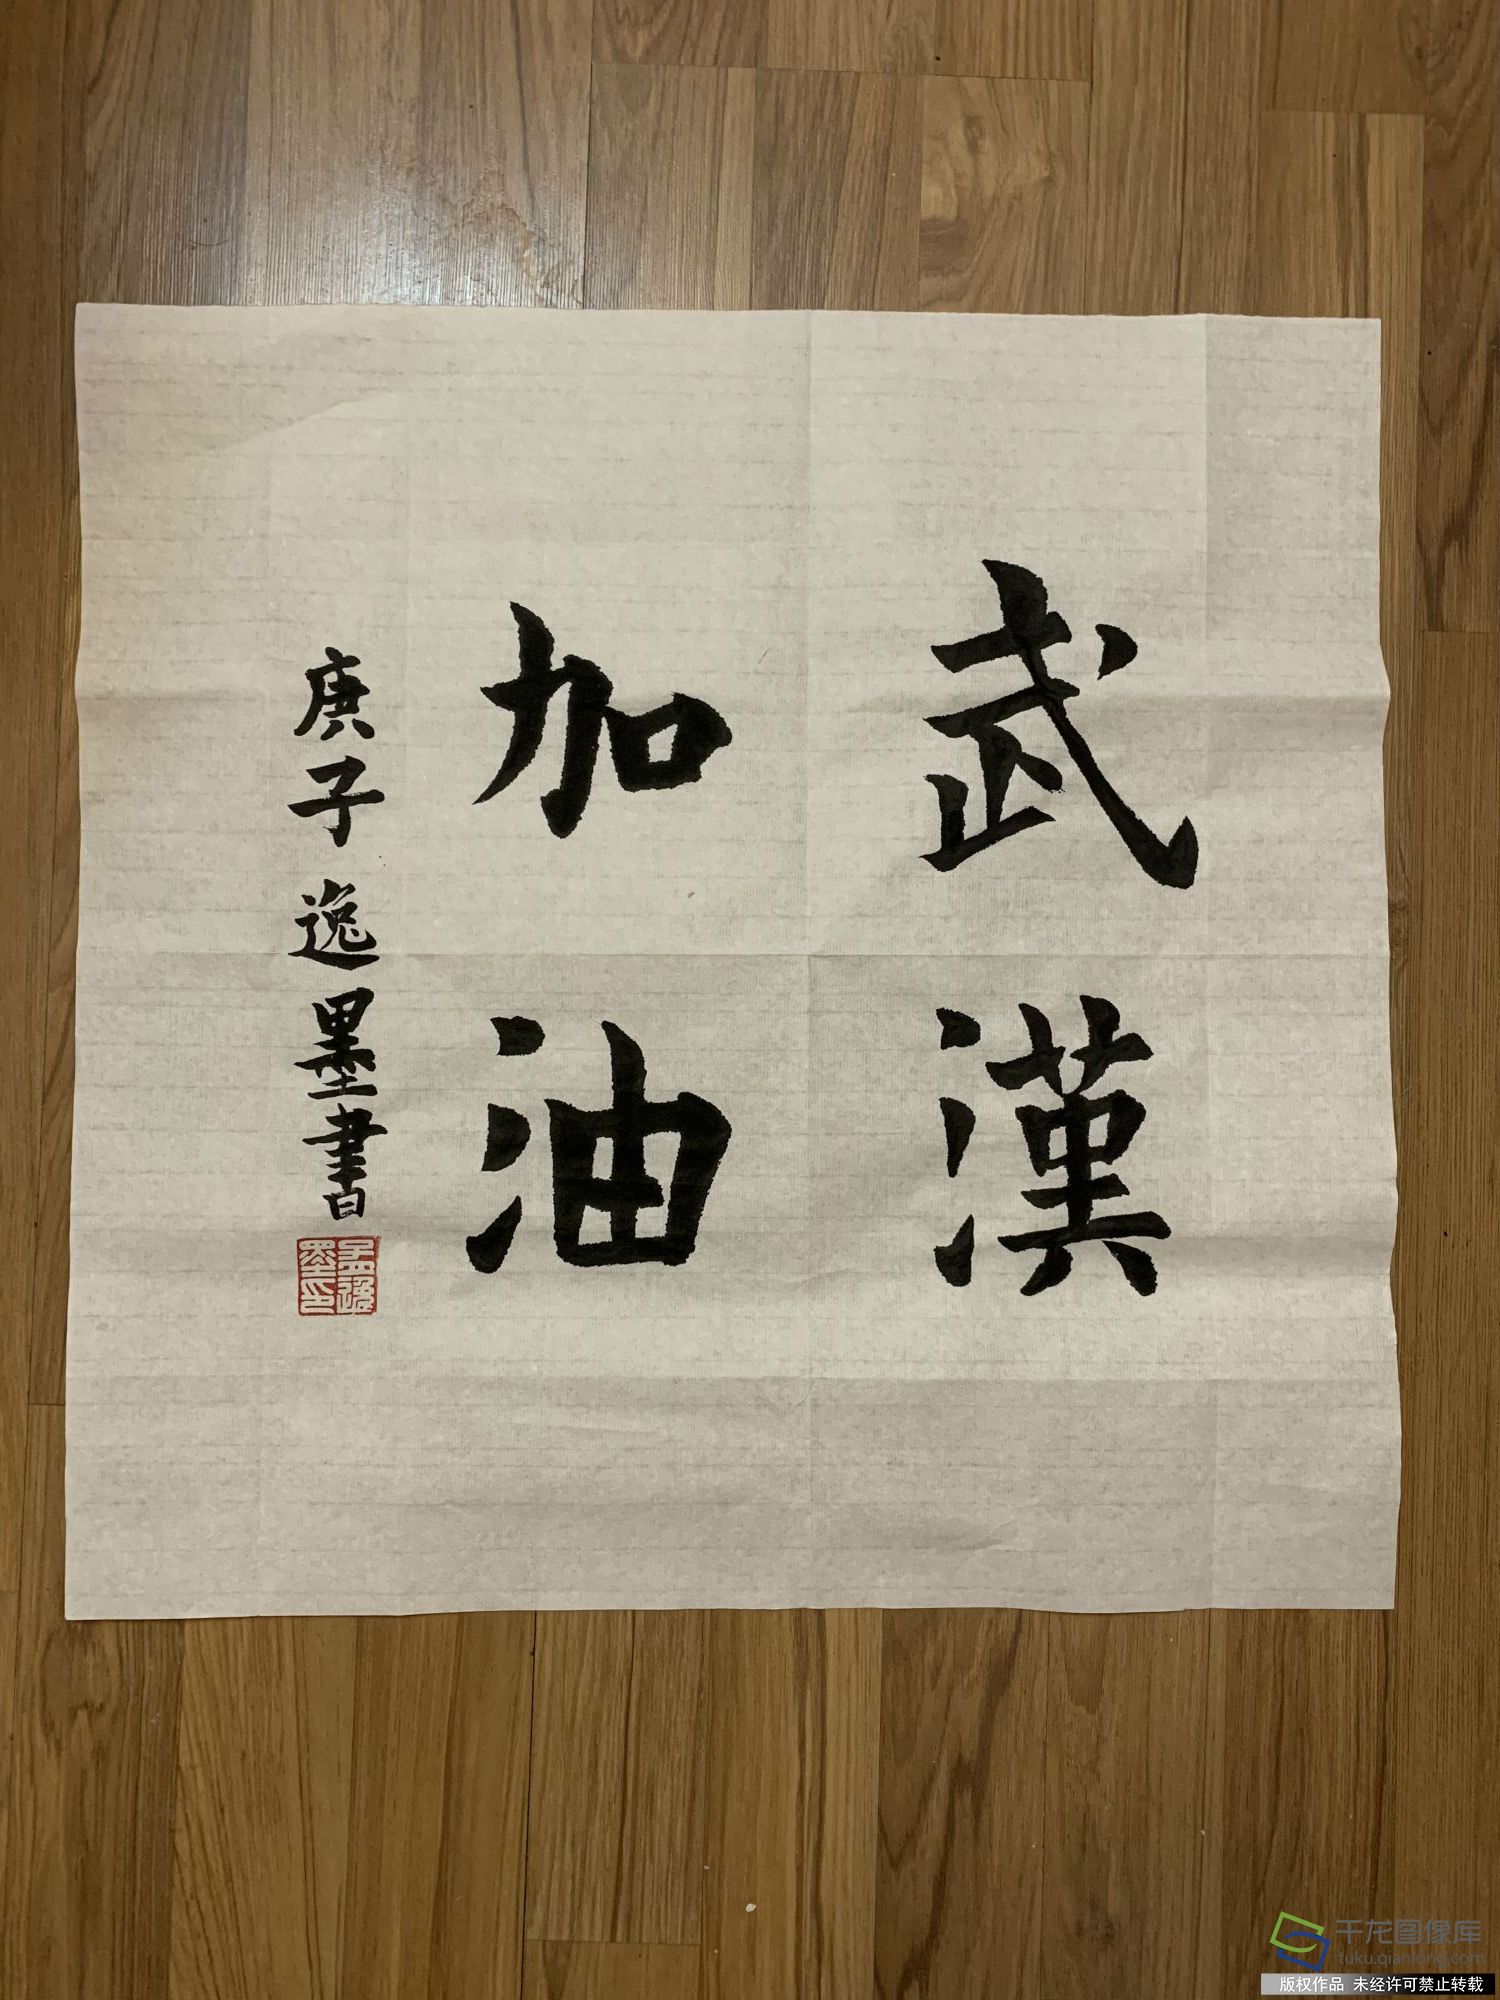 武漢
加油
庚子 逸墨書
孟逸
墨印
千龙图像库
tuku.qianlong.com
版权作品 未经许可禁止转载